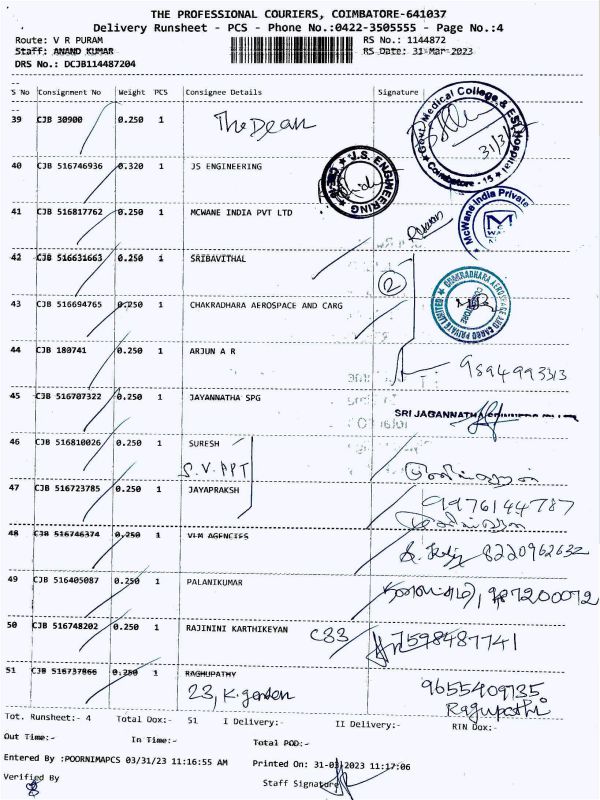 THE PROFESSIONAL COURIERS, COIMBATORE-641037
Delivery Runsheet - PCS - Phone No.:0422-3505555 - Page No.:4
Route: V R PURAM RS No.: 1144872
Staff: ANAND KUMAR RS Date: 31-Mar-2023
DRS No.: DCJB114487204
S No Consignment No Weight PCS Consignee Details Signature
39 CJB 30900 0.250 1 The Dean
Govt Medical College & ESI Hospital Coimbatore - 15
31/3
40 CJB 516746936 0.320 1 JS ENGINEERING
J.S. ENGINEERING
41 CJB 516817762 0.250 1 MCWANE INDIA PVT LTD
McWane India Private
42 CJB 516631663 0.250 1 SRIBAVITHAL
2
43 CJB 516694765 0.250 1 CHAKRADHARA AEROSPACE AND CARG
CHAKRADHARA AEROSPACE AND CARGO PRIVATE LIMITED
44 CJB 180741 0.250 1 ARJUN A R
9894993313
45 CJB 516707322 0.250 1 JAYANNATHA SPG
SRI JAGANNATHA
46 CJB 516810026 0.250 1 SURESH
S.V. APT
47 CJB 516723785 0.250 1 JAYAPRAKSH
9976144787
48 CJB 516746374 0.250 1 VLM AGENCIES
8220962632
49 CJB 516405087 0.250 1 PALANIKUMAR
50 CJB 516748202 0.250 1 RAJININI KARTHIKEYAN C33 7598487741
51 CJB 516737866 0.250 1 RAGHUPATHY
23, K. garden 9655409735
Ragupathi
Tot. Runsheet:- 4 Total Dox:- 51 I Delivery:- II Delivery:- RTN Dox:-
Out Time:- In Time:- Total POD:-
Entered By :POORNIMAPCS 03/31/23 11:16:55 AM Printed On: 31-03-2023 11:17:06
Verified By Staff Signature